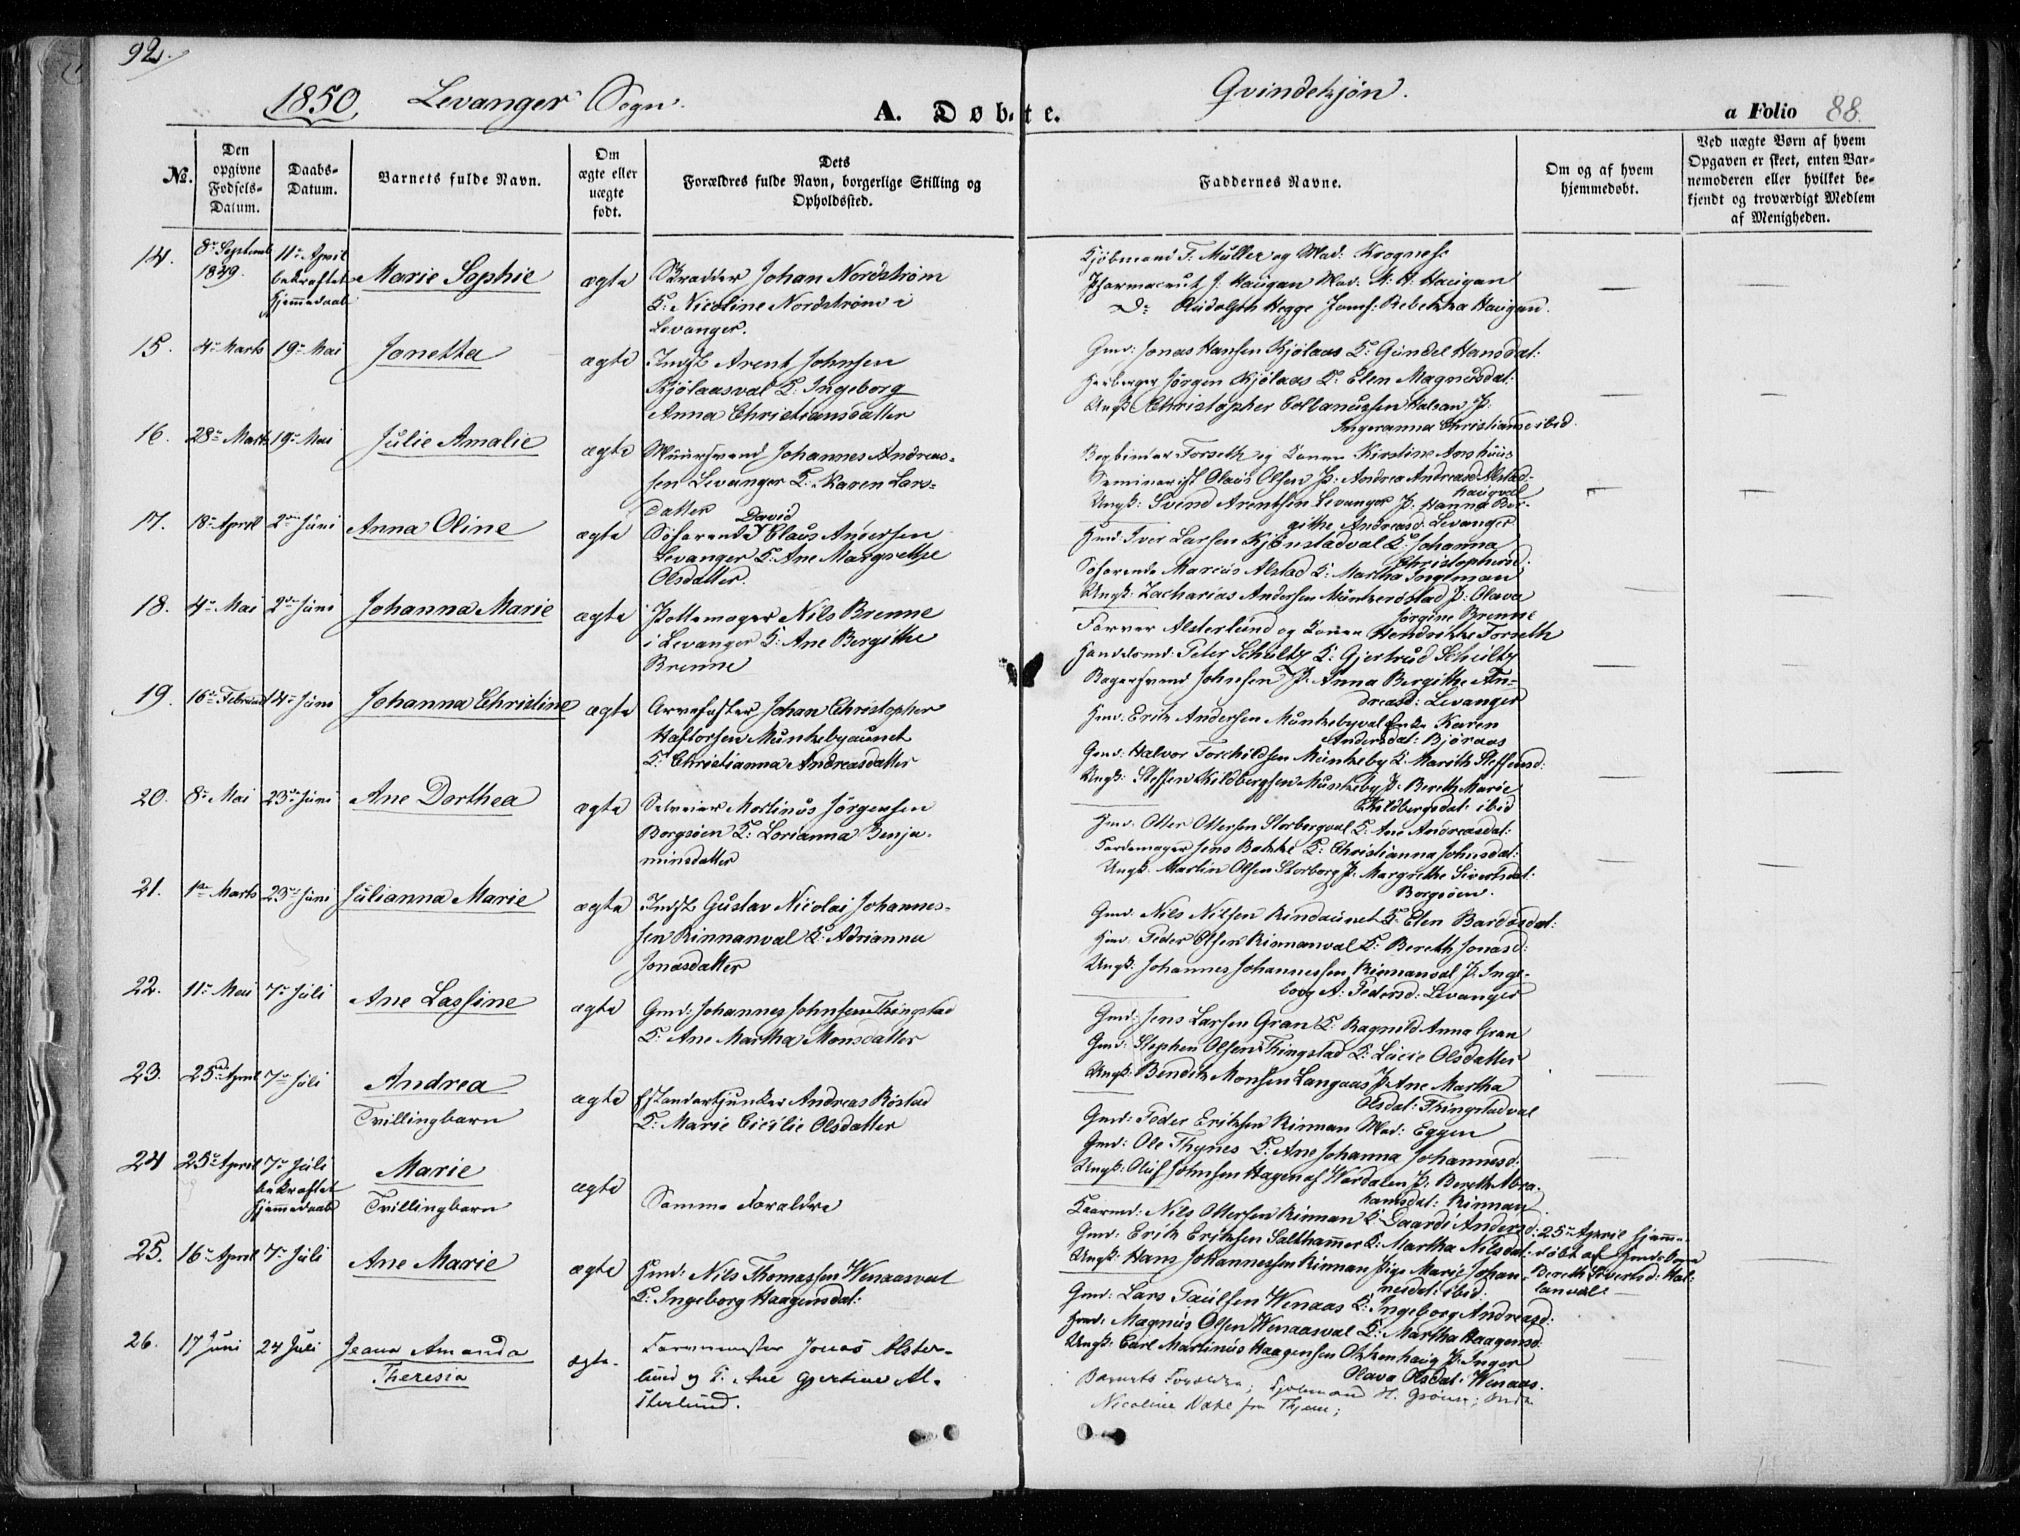 92.
1850 Levanger Sogn.
Qvindekjøn.
A. Døbte.
a Folio 88.
No.
Den opgivne Fødsels-Datum.
Daabs-Datum.
Barnets fulde Navn.
Om ægte eller uægte født.
Dets Forældres fulde Navn, borgerlige Stilling og Opholdssted.
Faddernes Navne.
Om og af hvem hjemmedøbt.
Ved uægte Børn af hvem Opgaven er skeet, enten Barnemoderen eller hvilket bekjendt og troværdigt Medlem af Menigheden.
14. 8de Septemb 1849. 11te April bekræftet Hjemmedaab Marie Sophie ægte
Skrædder Johan Nordstrøm
K: Nicoline Nordstrøm i
Levanger.
Kjøbmand F. Müller og Mad: Krognes
Pharmaceut J. Haugan Mad: A. H. Haugan
Do Rudolph Hegge Jomf: Rebekka Haugan.
15. 4de Marts 19de Mai Jonetta ægte
Indst Arent Johnsen
Kjølaasval K: Ingeborg
Anna Christiansdatter
Gmd: Jonas Hansen Kjølaas K: Gundel Hansdat:
Jørgen Kjølaas K: Elen Magnusdat:
Ungk: Christopher Collanussen Halsan P:
Ingeranna Christianse ibid.
16. 28de Marts 19de Mai Julie Amalie ægte
Muursvend Johannes Andreas-
sen Levanger K: Karen Lars-
datter
Bogbinder Forseth og Konen Kirstine Aushuus
Seminarist Olaus Olsen P: Andrea Andreasd Alstad-
haugval
Ungk: Svend Arentsen Levanger P: Hanna Ber-
githe Andreasd: Levanger
17. 18de April 2den Juni Anna Oline ægte
David
Søfarende Claus Andersen
Levanger K: Ane Margrethe
Olsdatter.
Hmd: Iver Larsen Kjønstadval K: Johanna
Christophersd:
Søfarende Marcus Alstad K: Martha Inglman
Ungk: Zacharias Andersen Munkerøstad P: Olava
Jørgine Brenne
18. 4de Mai 2den Juni Johanna Marie ægte
Pottemager Nils Brenne
i Levanger K: Ane Bergithe
Brenne
Farver Alsterlund og Konen Hendrikke Forseth
Handelsmd: Peter Schultz K: Gjertrud Schultz
Bagersvend Johnsen P: Anna Bergithe An-
dreasd: Levanger
19. 16de Februar 14de Juni Johanna Christine ægte
Arvefæster Johan Christopher
Haftorsen Munkebyaunet
K: Christianna Andreasdatter
Hmd: Erik Andersen Munkebyval Enke Karen
Andersdat: Bjøraas
Gmd: Halvor Torchildsen Munkeby K: Marith Steffensd:
Ungk: Steffen Kildbergsen Munkeby P: Bereth Marie
Kildbergsdat: ibid
20. 8de Mai 23de Juni Ane Dorthea ægte
Selveier Martinus Jørgensen
Borgsøen K: Lorianna Benja-
minsdatter
Hmd: Otter Ottersen Storborgval K: Ane Andreasdat:
Jens Bakke K: Christianna Johnsdat:
Ungk: Martin Olsen Storborg P: Margrethe Sivertsdat:
Borgsøen.
21. 1ste Marts 23de Juni Julianna Marie ægte
Indst Gustav Nicolai Johannes-
sen Rinnanval K: Adrianna
Jonasdatter
Gmd: Nils Nilsen Rindaunet K: Elen Bardosdat:
Hmd: Peder Olsen Rinnanval K: Bereth Jonasd:
Ungk: Johannes Johannessen Rinnanval P: Inge-
borg A: Pedersd: Levanger
22. 11te Mai 7de Juli Ane Lassine ægte
Gmd: Johannes Johnsen Thingstad
K: Ane Martha Monsdatter
Gmd: Jens Larsen Gran K: Ragnild Anna Gran
Gmd: Stephen Olsen Thingstad K: Lucie Olsdatter
Ungk: Bendik Monsen Langaas P: Ane Martha
Olsdat: Thingstadval
23. 25de April 7de Juli Andrea
Tvillingbarn ægte
Standartjunker Andreas Røstad
K: Marie Cicilie Olsdatter
Gmd: Peder Eriksen Rinnan Mad: Eggen
Gmd: Ole Thynes K: Ane Johanna Johannesd:
Ungk: Oluf Johnsen Hagen af Værdalen P: Bereth Abra-
hamsdat: Rinnan
24 25de April 7de Juli bekræftet Hjemmedaab Marie
Tvillingbarn ægte
Samme Forældre
Kaarmd: Nils Ottersen Rinnan K: Gaardi Andersd:
Gmd: Erik Eriksen Salthammer K: Martha Nilsdat:
Ungk: Hans Johannessen Rinnan Pige Marie Johan-
nesdat: ibid.
25de April hjemme-
døbt af Hmdskone
Bereth Sivertsd: Hal-
sanval
25. 16de April 7de Juli Ane Marie ægte
Hmd: Nils Thomassen Wenaasval
K: Ingeborg Haagensdat:
Gmd: Lars Paulsen Wenaas K: Ingeborg Andreasd:
Hmd: Magnus Olsen Wenaasval K: Martha Haagensd:
Ungk: Carl Martinus Haagensen Okkenhaug P: Inger
Olava Olsdat: Wenaas.
26. 17 Juni 24 Juli Jeana Amanda
Theresia ægte.
Farvemester Jonas Alster-
lund og K. Ane Gjertine Al-
sterlund.
Barnets Forældre; Kjøbmand H. Grønn;
Nicoline fra Thjem;